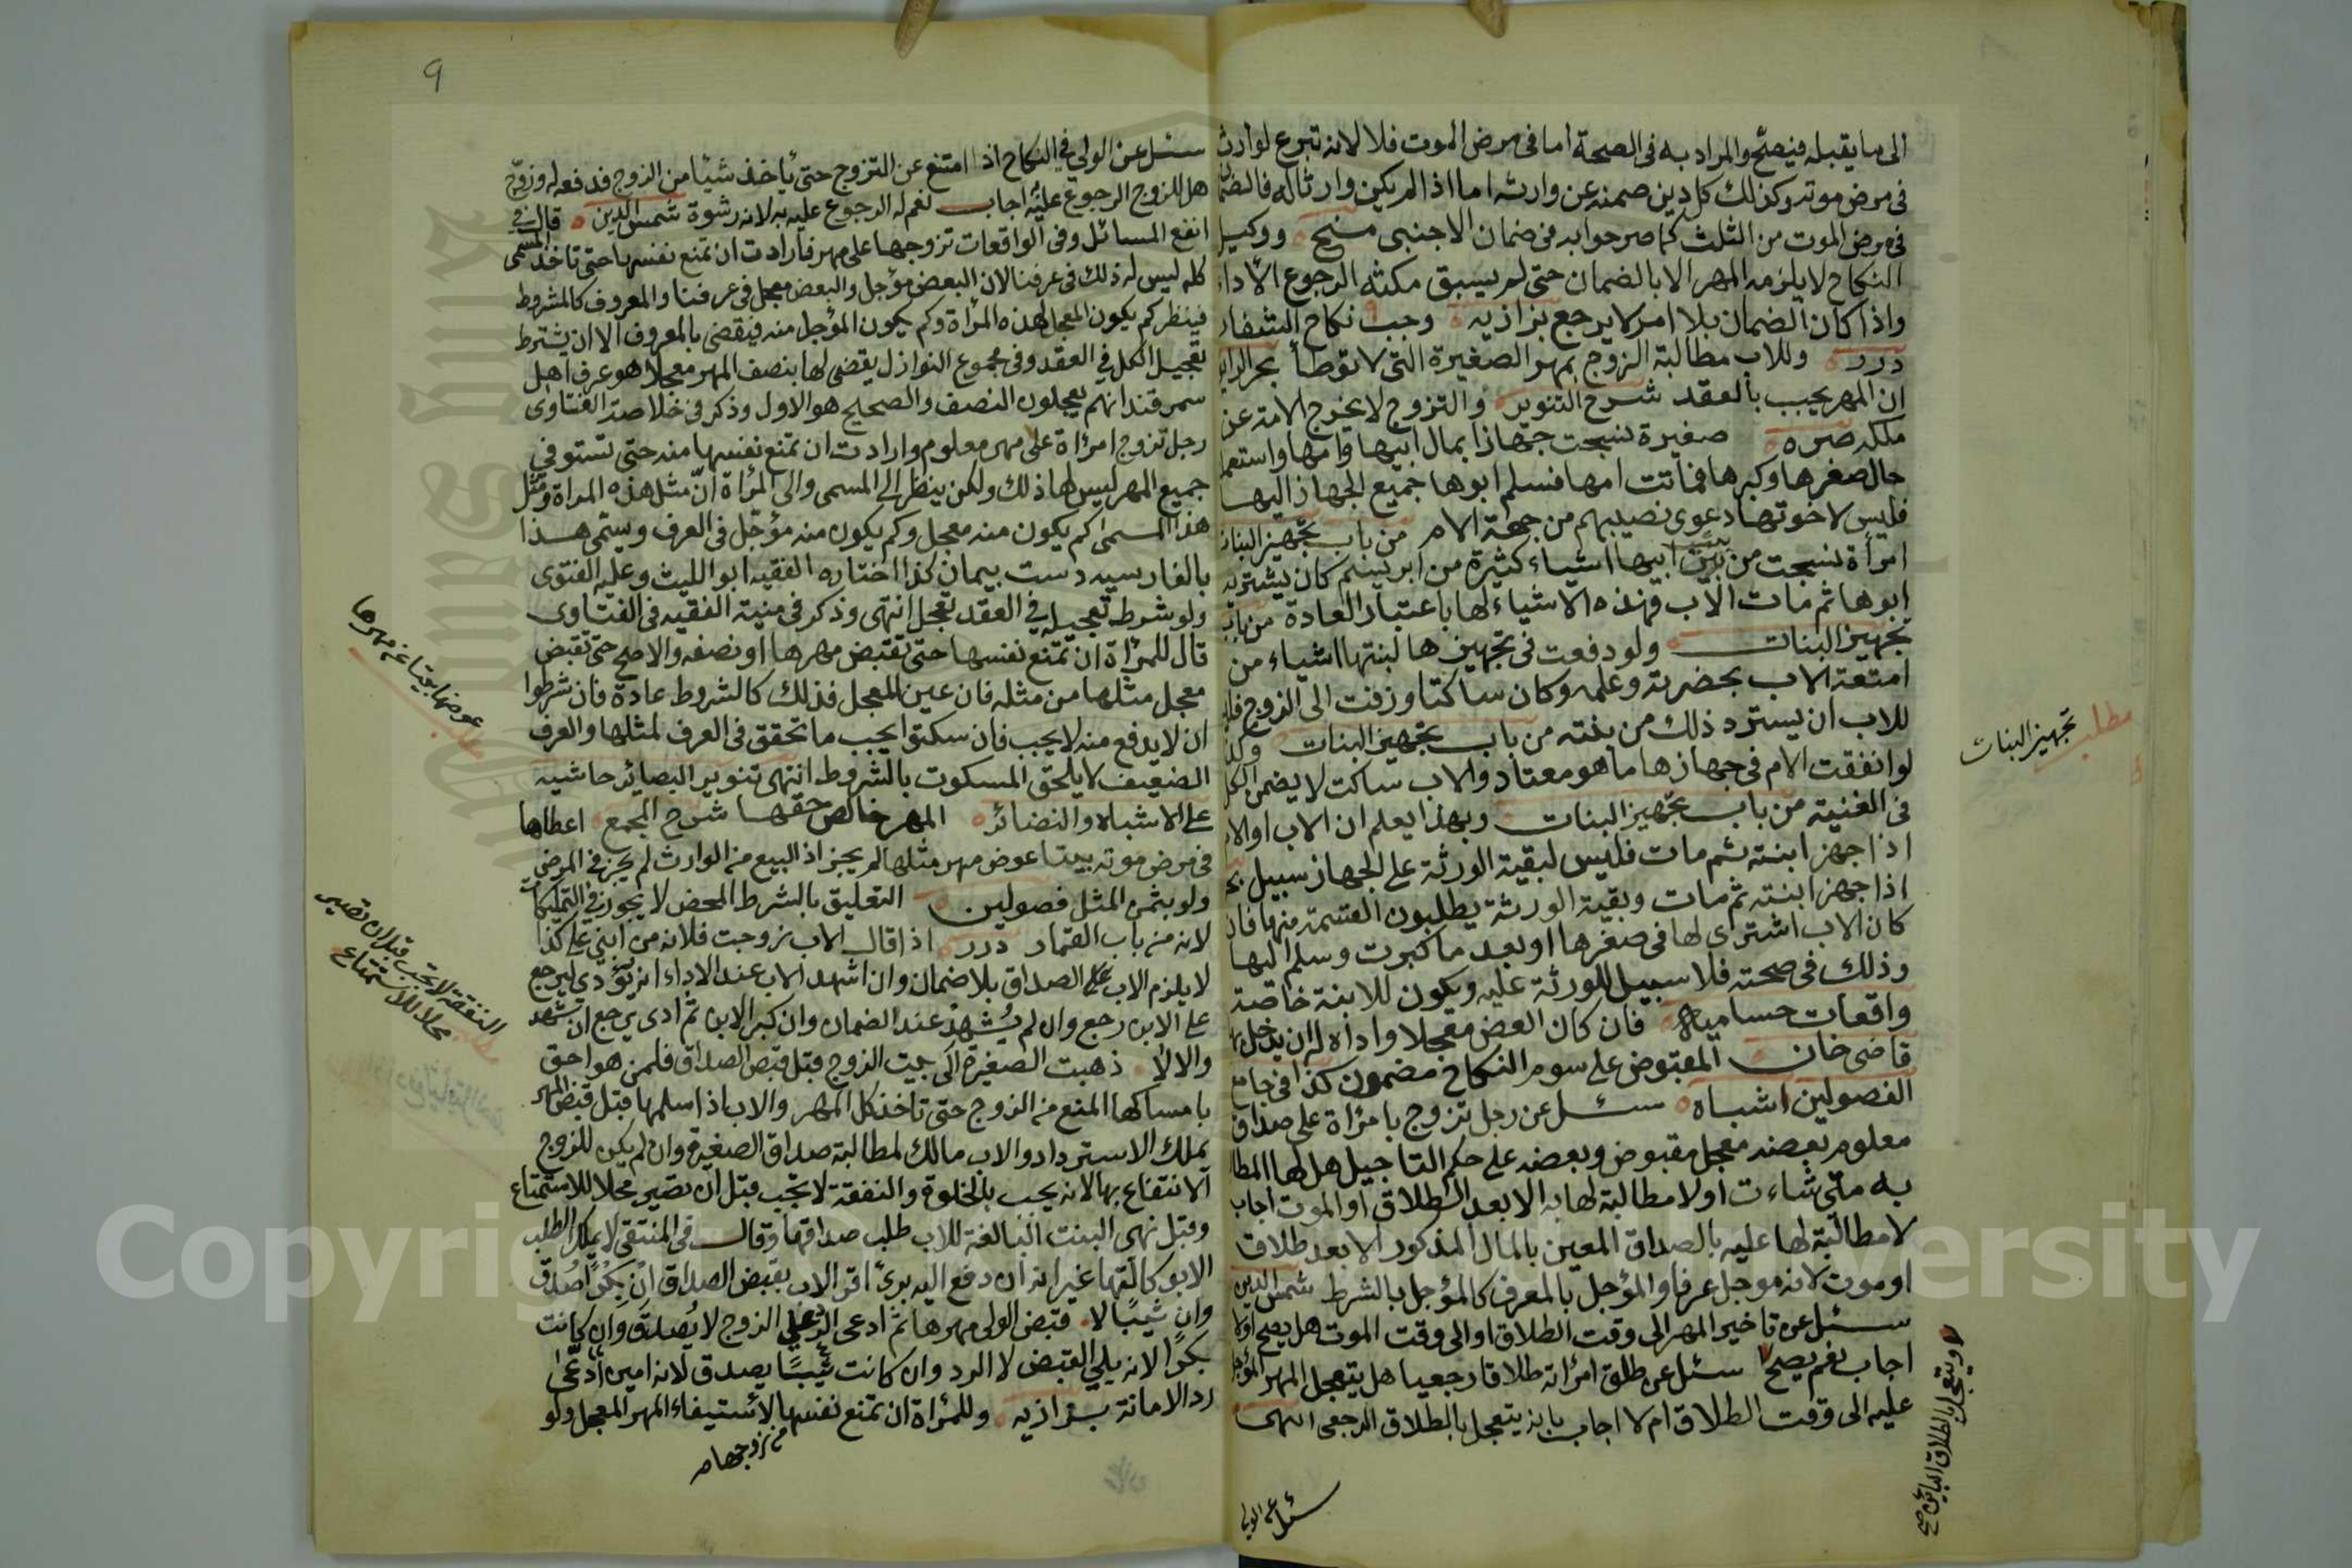 الى ما يقبله فيصح والمراد به فى الصحة اما فى مرض الموت فلا لانه تبرع لوارث
فى مرض موته وكذلك كل دين ضمنه عن وارثه اما اذا لم يكن وارثا له فالضمان
فى مرض الموت من الثلث كما صر حوابه فى ضمان الاجنبى منح ووكيل
النكاح لا يلزمه المهر الا بالضمان حتى لم يسبق مكنثه الرجوع الاداء
واذا كان الضمان بلا امر لا يرجع بزازيه وجب نكاح الشغار
درر وللاب مطالبة الزوج بمهر الصغيرة التى لا توطأ بحر الرايق
ان المهر يجب بالعقد شرح التنوير والتزوج لا يخرج الامة عن
ملكه صره صغيرة نسجت جهازا بمال ابيها وامها واستعمل
حال صغرها وكبرها فماتت امها فسلم ابوها جميع الجهاز اليها
فليس لاخوتها دعوى نصيبهم من جهة الام من باب تجهيز البنات
امرأة نسجت من بيت ابيها اشياء كثيرة من ابريسم كان يشتريه
ابوها ثم مات الاب فهذه الاشياء لها باعتبار العادة من باب
تجهيز البنات ولو دفعت فى تجهيزها لبنتها اشياء من
امتعة الاب بحضرته وعلمه وكان ساكتا وزفت الى الزوج فليس
للاب ان يسترد ذلك من بنته من باب تجهيز البنات وكذا
لو انفقت الام فى جهازها ما هو معتاد والاب ساكت لا يضمن الكل
فى الغنية من باب تجهيز البنات وبهذا يعلم ان الاب او الام
اذا جهز ابنته ثم مات فليس لبقية الورثة على الجهاز سبيل
اذا جهز ابنته ثم مات وبقية الورثة يطلبون القسمة منها فان
كان الاب اشترى لها فى صغرها او بعد ما كبرت وسلم اليها
وذلك فى صحته فلا سبيل للورثة عليه ويكون للابنة خاصة
واقعات حساميه فان كان العض معجلا واداه له ان يدخل بها
قاضى خان المقبوض على سوم النكاح مضمون كذا فى جامع
الفصولين اشباه سئل عن رجل تزوج بامرأة على صداق
معلوم بعضه معجل مقبوض وبعضه على حكم التاجيل هل لها المطالبة
به متى شاءت او لا مطالبة لها به الا بعد الطلاق او الموت اجاب
لا مطالبة لها عليه بالصداق المعين بالمال المذكور الا بعد طلاق
او موت لانه موجل عرفا والمؤجل بالعرف كالمؤجل بالشرط شمس الدين
سئل عن تاخير المهر الى وقت الطلاق او الى وقت الموت هل يصح او لا
اجاب نعم يصح سئل عن طلق امرأته طلاقا رجعيا هل يتعجل المهر المؤجل
عليه الى وقت الطلاق ام لا اجاب بانه يتعجل بالطلاق الرجعى انتهى
مطلب تجهيز البنات
ويتعجل بالطلاق البائن صح
سئل عن الولي
٩
سئل عن الولي في النكاح اذا امتنع عن التزوج حتى ياخذ شيئا من الزوج فدفعه له وزوّج
هل للزوج الرجوع عليه اجاب نعم له الرجوع عليه به لانه رشوة شمس الدين قال في
انفع المسائل وفى الواقعات تزوجها على مهر فارادت ان تمنع نفسها حتى تاخذ المسمى
كله ليس له ذلك فى عرفنا لان البعض مؤجل والبعض معجل فى عرفنا والمعروف كالمشروط
فينظر كم يكون المعجل لهذه المرأة وكم يكون المؤجل منه فيقضى بالمعروف الا ان يشترط
تعجيل الكل في العقد وفى مجموع النوازل يقضى لها بنصف المهر معجلا هو عرف اهل
سمرقند انهم يعجلون النصف والصحيح هو الاول وذكر فى خلاصة الفتاوى
رجل تزوج امرأة على مهر معلوم وارادت ان تمنع نفسها منه حتى تستوفى
جميع المهر ليس لها ذلك ولكن ينظر الى المسمى والى المرأة انّ مثل هذه المراة ومثل
هذا المسمى كم يكون منه معجل وكم يكون منه مؤجّل فى العرف ويسمى هذا
بالفارسيه دست بيمان كذا اختاره الفقيه ابو الليث وعليه الفتوى
ولو شرط تعجيله في العقد تعجل انتهى وذكر فى منية الفقيه فى الفتاوى
قال للمرأة ان تمنع نفسها حتى تقبض مهرها او نصفه والاصح حتى تقبض
معجل مثلها من مثله فان عين المعجل فذلك كالشروط عادة فان شرطوا
ان لا يدفع منه لا يجب فان سكتوا يجب ما تحقق فى العرف لمثلها والعرف
الضعيف لا يلحق المسكوت بالشروط انتهى تنوير البصائر حاشيه
على الاشباه والنضائر المهر خالص حقها شرح المجمع اعطاها
فى مرض موته بيتا عوض مهر مثلها لم يجز اذ البيع من الوارث لم يجز فى المرض
ولو بثمن المثل فصولين التعليق بالشرط المحض لا يجوز فى التمليكات
لانه من باب القمار درر اذا قال الاب زوجت فلانه من ابني على كذا
لا يلزم الاب على الصداق بلا ضمان وان اشهد الاب عند الاداء انه يؤدى ليرجع
على الابن رجع وان لم يُشهد عند الضمان وان كبر الابن ثم ادى يرجع ان شهد
والا لا ذهبت الصغيرة الى بيت الزوج قبل قبض الصداق فلمن هو احق
بامساكها المنع من الزوج حتى تاخذ كل المهر والاب اذا سلمها قبل قبض المهر
يملك الاسترداد والاب مالك لمطالبة صداق الصغيرة وان لم يكن للزوج
الانتفاع بها لانه يجب بالخلوة والنفقة لا تجب قبل ان تصير محلا للاستمتاع
وقبل نهى البنت البالغة للاب طلب صداقها وقال فى المنتقى لا يملك الطلب
الا بوكالتها غير انه ان دفع اليه برئ اقر الاب بقبض الصداق ان بكرا صُدق
وان ثيبًا لا قبض الولى مهرها ثم ادعى الرد على الزوج لا يُصدق وان كانت
بكرا لانه يلي القبض لا الرد وان كانت ثيبًا يصدق لانه امين ادّعى
رد الامانة بزازيه وللمرأة ان تمنع نفسها لاستيفاء المهر المعجل ولو
من زوجها م
النفقة لا تجب قبل ان تصير
محلا للاستمتاع
مطلب
Copyright © King Saud University